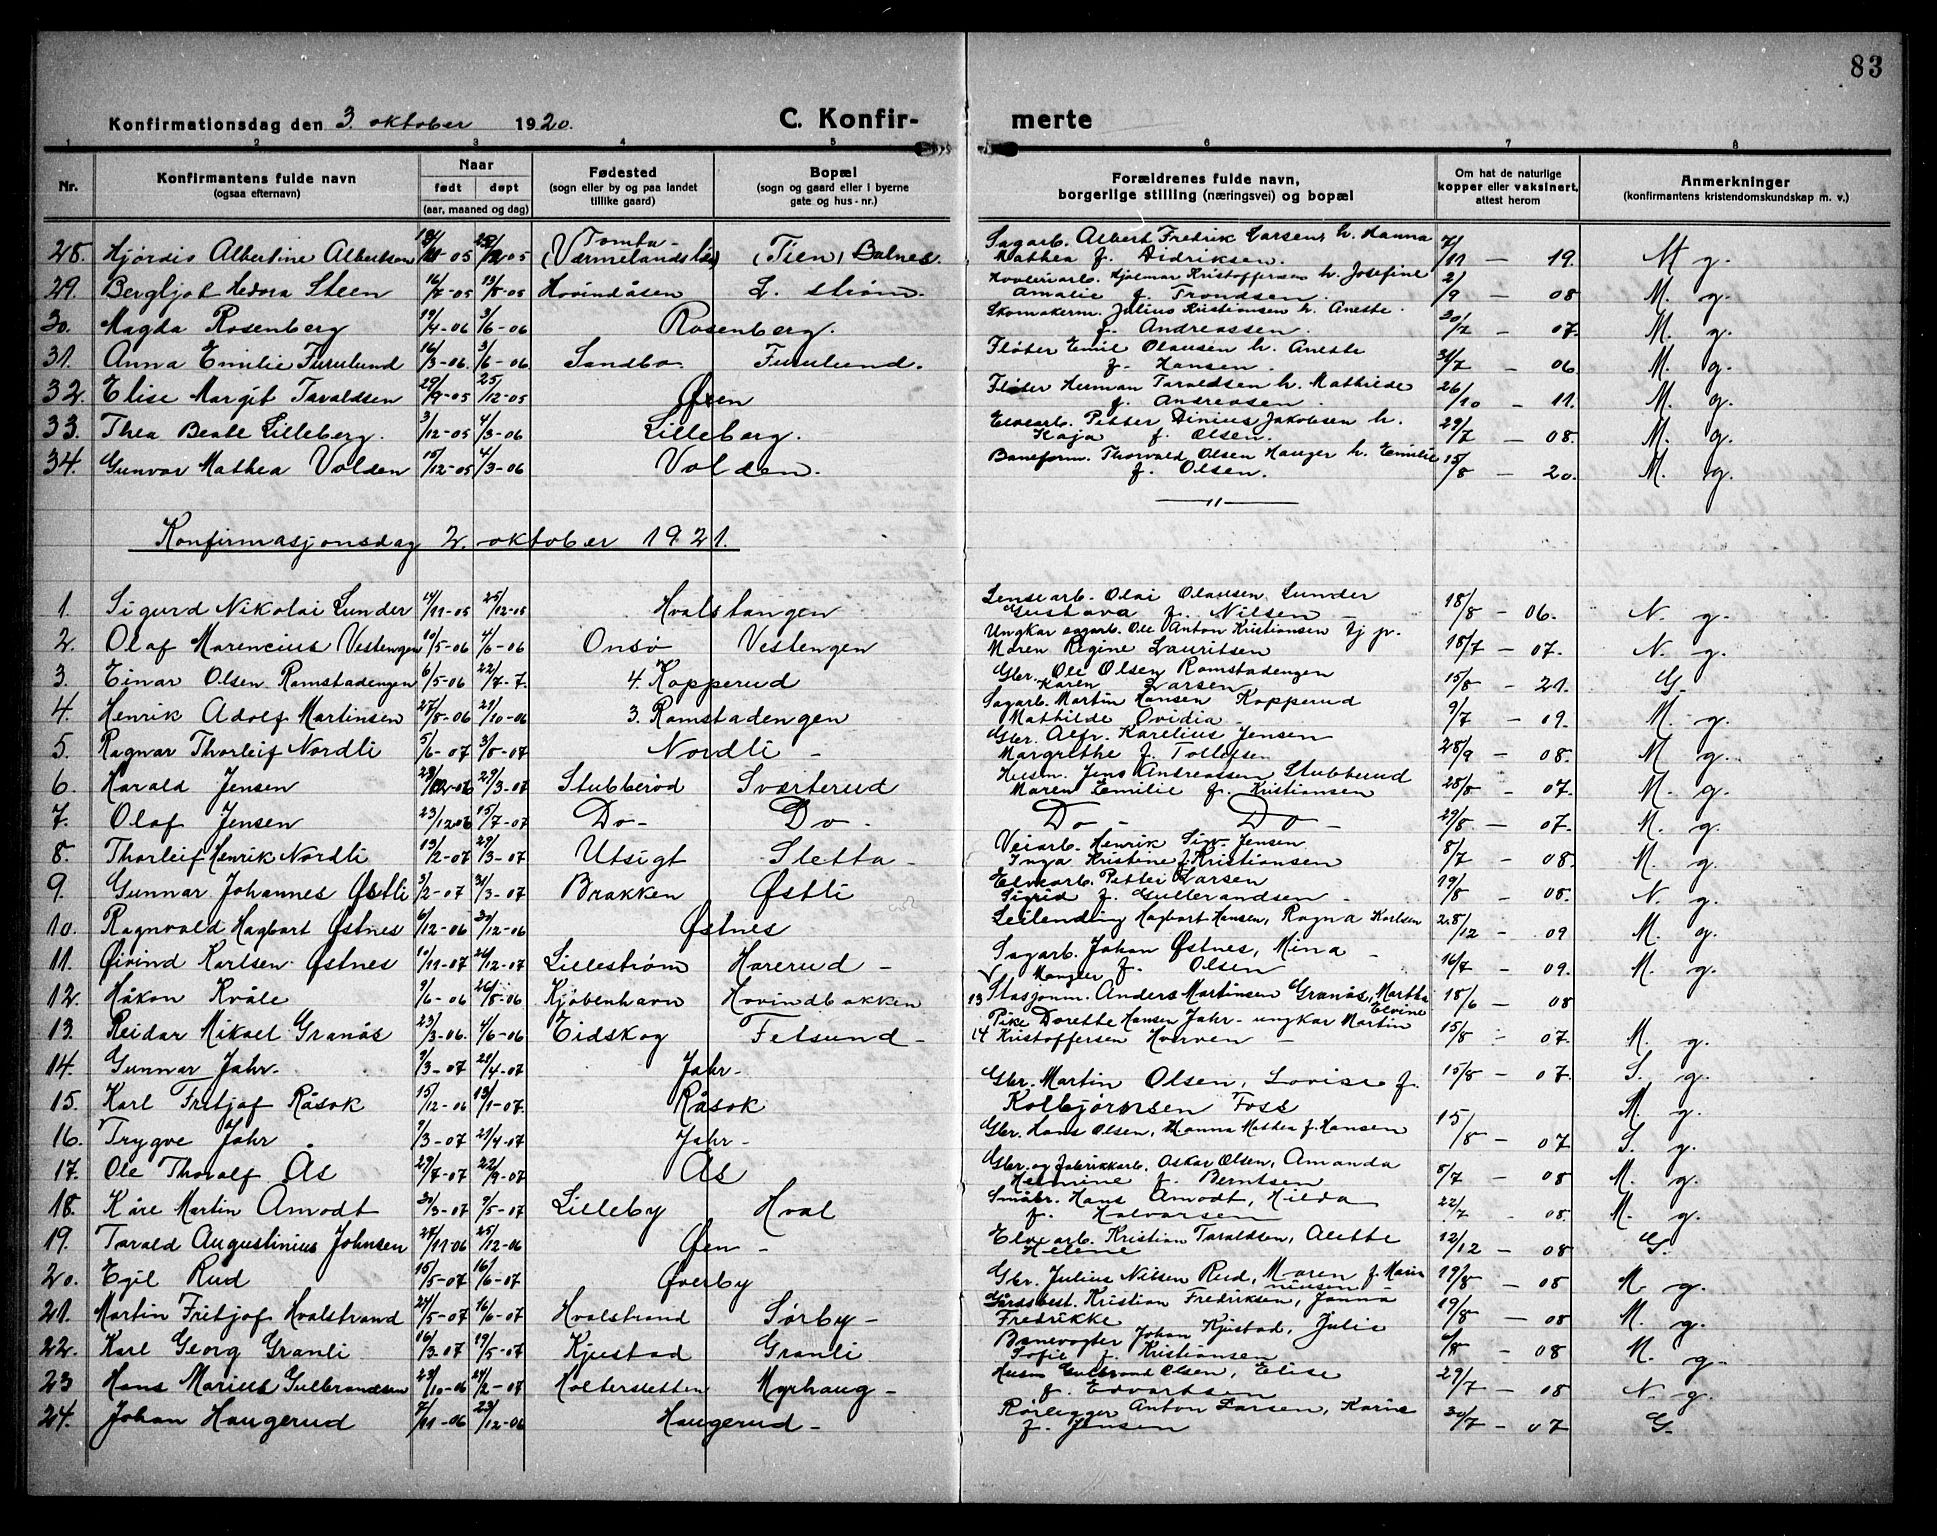 83
Konfirmationsdag den 3. oktober 1920. C. Konfirmerte
1 2 3 4 5 6 7 8
Nr. Konfirmantens fulde navn (ogsaa efternavn) Naar født døpt (aar, maaned og dag) Fødested (sogn eller by og paa landet tillike gaard) Bopæl (sogn og gaard eller i byerne gate og hus-nr.) Forældrenes fulde navn, borgerlige stilling (næringsvei) og bopæl Om hat de naturlige kopper eller vaksinert, attest herom Anmerkninger (konfirmantens kristendomskundskap m. v.)
28. Hjørdis Albertine Albertsen Tomta (Værmelandslia) (Tien) Balnes. Sagarb. Albert Fredrik Larsen, h. Hanna Mathea f. Didriksen. 7/11 – 19. M g.
29. Bergljot Medora Steen 16/7-05 13/8-05 Hovindåsen L. strøm. Hjelmar Kristoffersen h. Josefine Amalie f. Trondsen. 2/9 – 08 M. g.
30. Magda Rosenberg 19/4-06 3/6-06 Rosenberg. Skomakerm. Julius Kristiansen h. Anette f. Andreassen. 30/7 – 07. M. g.
31. Anna Emilie Furulund 16/3-06. 3/6-06 Sandbo Furulund. Fløter Emil Olausen h. Anette f. Hansen. 31/7 – 06 M. g.
32. Elise Margit Taraldsen 29/9-05 25/12-05 Øien Fløter Herman Taraldsen h. Mathilde f. Andreasen. 26/10 – 11. M. g.
33. Thea Beate Lilleberg. 3/12-05 4/3-06 Lilleberg. Elvearb. Petter Dinius Jakobsen h. Kaja f. Olsen. 29/7 – 08. M. g.
34. Gunvor Mathea Volden 15/12-05 4/3-06 Volden. Baneform. Thorvald Olsen Hauger h. Emilie f. Olsen. 15/8 – 20. M. g.
— 〃 —
Konfirmasjonsdag 2. oktober 1921.
1. Sigurd Nikolai Lunder 14/11-05 25/12-05 Hvalstangen Lensearb. Olai Olausen Lunder Gustava f. Nilsen – 18/8 – 06. N. g.
2. Olaf Marencius Vestengen 10/5-06 4/6-06 Onsø Vestengen Ungkar sagarb. Ole Anton Kristiansen Maren Regine Lauritsen 18/7 – 07. N. g.
3. Einar Olsen Ramstadengen 6/5-06 22/7-7. 4. Kopperud Gbr. Ole Olsen Ramstadengen Karen Larsen 15/8 – 21. G.
4. Henrik Adolf Martinsen 27/8-06 29/10-06 3. Ramstadengen Sagarb. Martin Hansen Kopperud Mathilde Ovidia – 9/7 – 09. M. g.
5. Ragnar Thorleif Nordli 5/6-07 3/8-07 Nordli – Gbr. Alfr. Karelius Jensen Margrethe f. Tollefsen 28/9 – 08. M g.
6. Harald Jensen 23/12-06 29/3-07 Stubberød Sværterud Husm. Jens Andreassen Stubberud Maren Emilie f. Kristiansen 28/8 – 07. M. g.
7. Olaf Jensen 23/12 06 15/7-07 Do – Do – Do – Do – 29/8. – 07. M. g.
8. Thorleif Henrik Nordli 13/2-07 29/3-07 Utsigt Sletta – Veiarb. Henrik Sigv. Jensen Inga Kristine f. Kristiansen 8/7 – 08. M. g.
9. Gunnar Johannes Østli 3/2-07 31/3-07 Brakken Østli Elvearb. Petter Larsen Sigrid f. Gulbrandsen – 19/8 – 08. N. g.
10. Ragnvald Hagbart Østnes 6/12-06 30/12-06 Østnes Leilending Hagbart Hansen, Ragna Karlsen 28/12 – 09 M. g.
11. Øivind Karlsen Østnes 10/11-07 26/12-07 Lillestrøm Harerud – Sagarb. Johan Østnes, Mina – f. Olsen 16/7 – 09. M. g.
12. Håkon Kvåle 9/6-06 26/8-06 Kjøbenhavn Hovindbakken Mangler 13 Stasjonm. Anders Martinsen Granås, Martha Elvine 18/6 – 08
13. Reidar Mikael Granås 23/3-06. 4/6-06 Eidskog Fetsund – 14 Pike Dorette Hansen Jahr – ungkar Martin Kristoffersen Hverven – 15/8 – 07. M. g.
14. Gunnar Jahr. 9/3-07 21/4-07 Jahr – 15/8 – 07. S. g.
15. Karl Fritjof Råsok 15/12-06 13/1-07. Råsok Gbr. Martin Olsen, Lovise f. Kolbjørnsen Foss M. g.
16. Trygve Jahr 9/3-07 21/4-07 Jahr – Gbr. Hans Olsen, Hanna Mathea f. Hansen 15/8 – 07. S. g.
17. Ole Thoralf Ås 29/7-07 22/9-07 Ås Gbr. og fabrikkarb. Oskar Olsen, Amanda Hermine f. Berntsen 5/7 – 08 M. g.
18. Kåre Martin Åmodt 30/3-07 9/5-07 Lilleby Hval Småbr. Hans Åmodt, Hilda f. Halvorsen 22/7 – 08. M. g.
19. Tarald Augustinius Johnsen 27/11-06 25/12-06 Øien – Elvearb. Kristian Taraldsen, Alette Helene 12/12 – 08 G.
20. Egil Rud 15/5-07 16/6-07 Øverby Gbr. Julius Nilsen Rud, Maren f. Mariniusson 19/8 – 08 M. g.
21. Martin Fritjof Hvalstrand 24/5-07 16/6-07 Hvalstrand Sørby – Gårdsbest. Kristian Fredriksen, Janna Fredrikke 19/8 – 08 M. g.
22. Karl Georg Granli 16/3-07 19/5-07 Kjustad Granli Banevogter Johan Kjustad, Julie Sofie f. Kristiansen 6/8 – 08 M. g.
23 Hans Marius Gulbrandsen 23/10-06 24/2-07 Holtersletten Myrhaug – Husm Gulbrand Olsen, Elise f. Edvartsen 29/7 – 08 N. g.
24. Johan Haugerud 7/11-06 23/12-06 Haugerud – Rørlegger Anton Larsen, Karine f. Jensen 30/7 – 07 G.